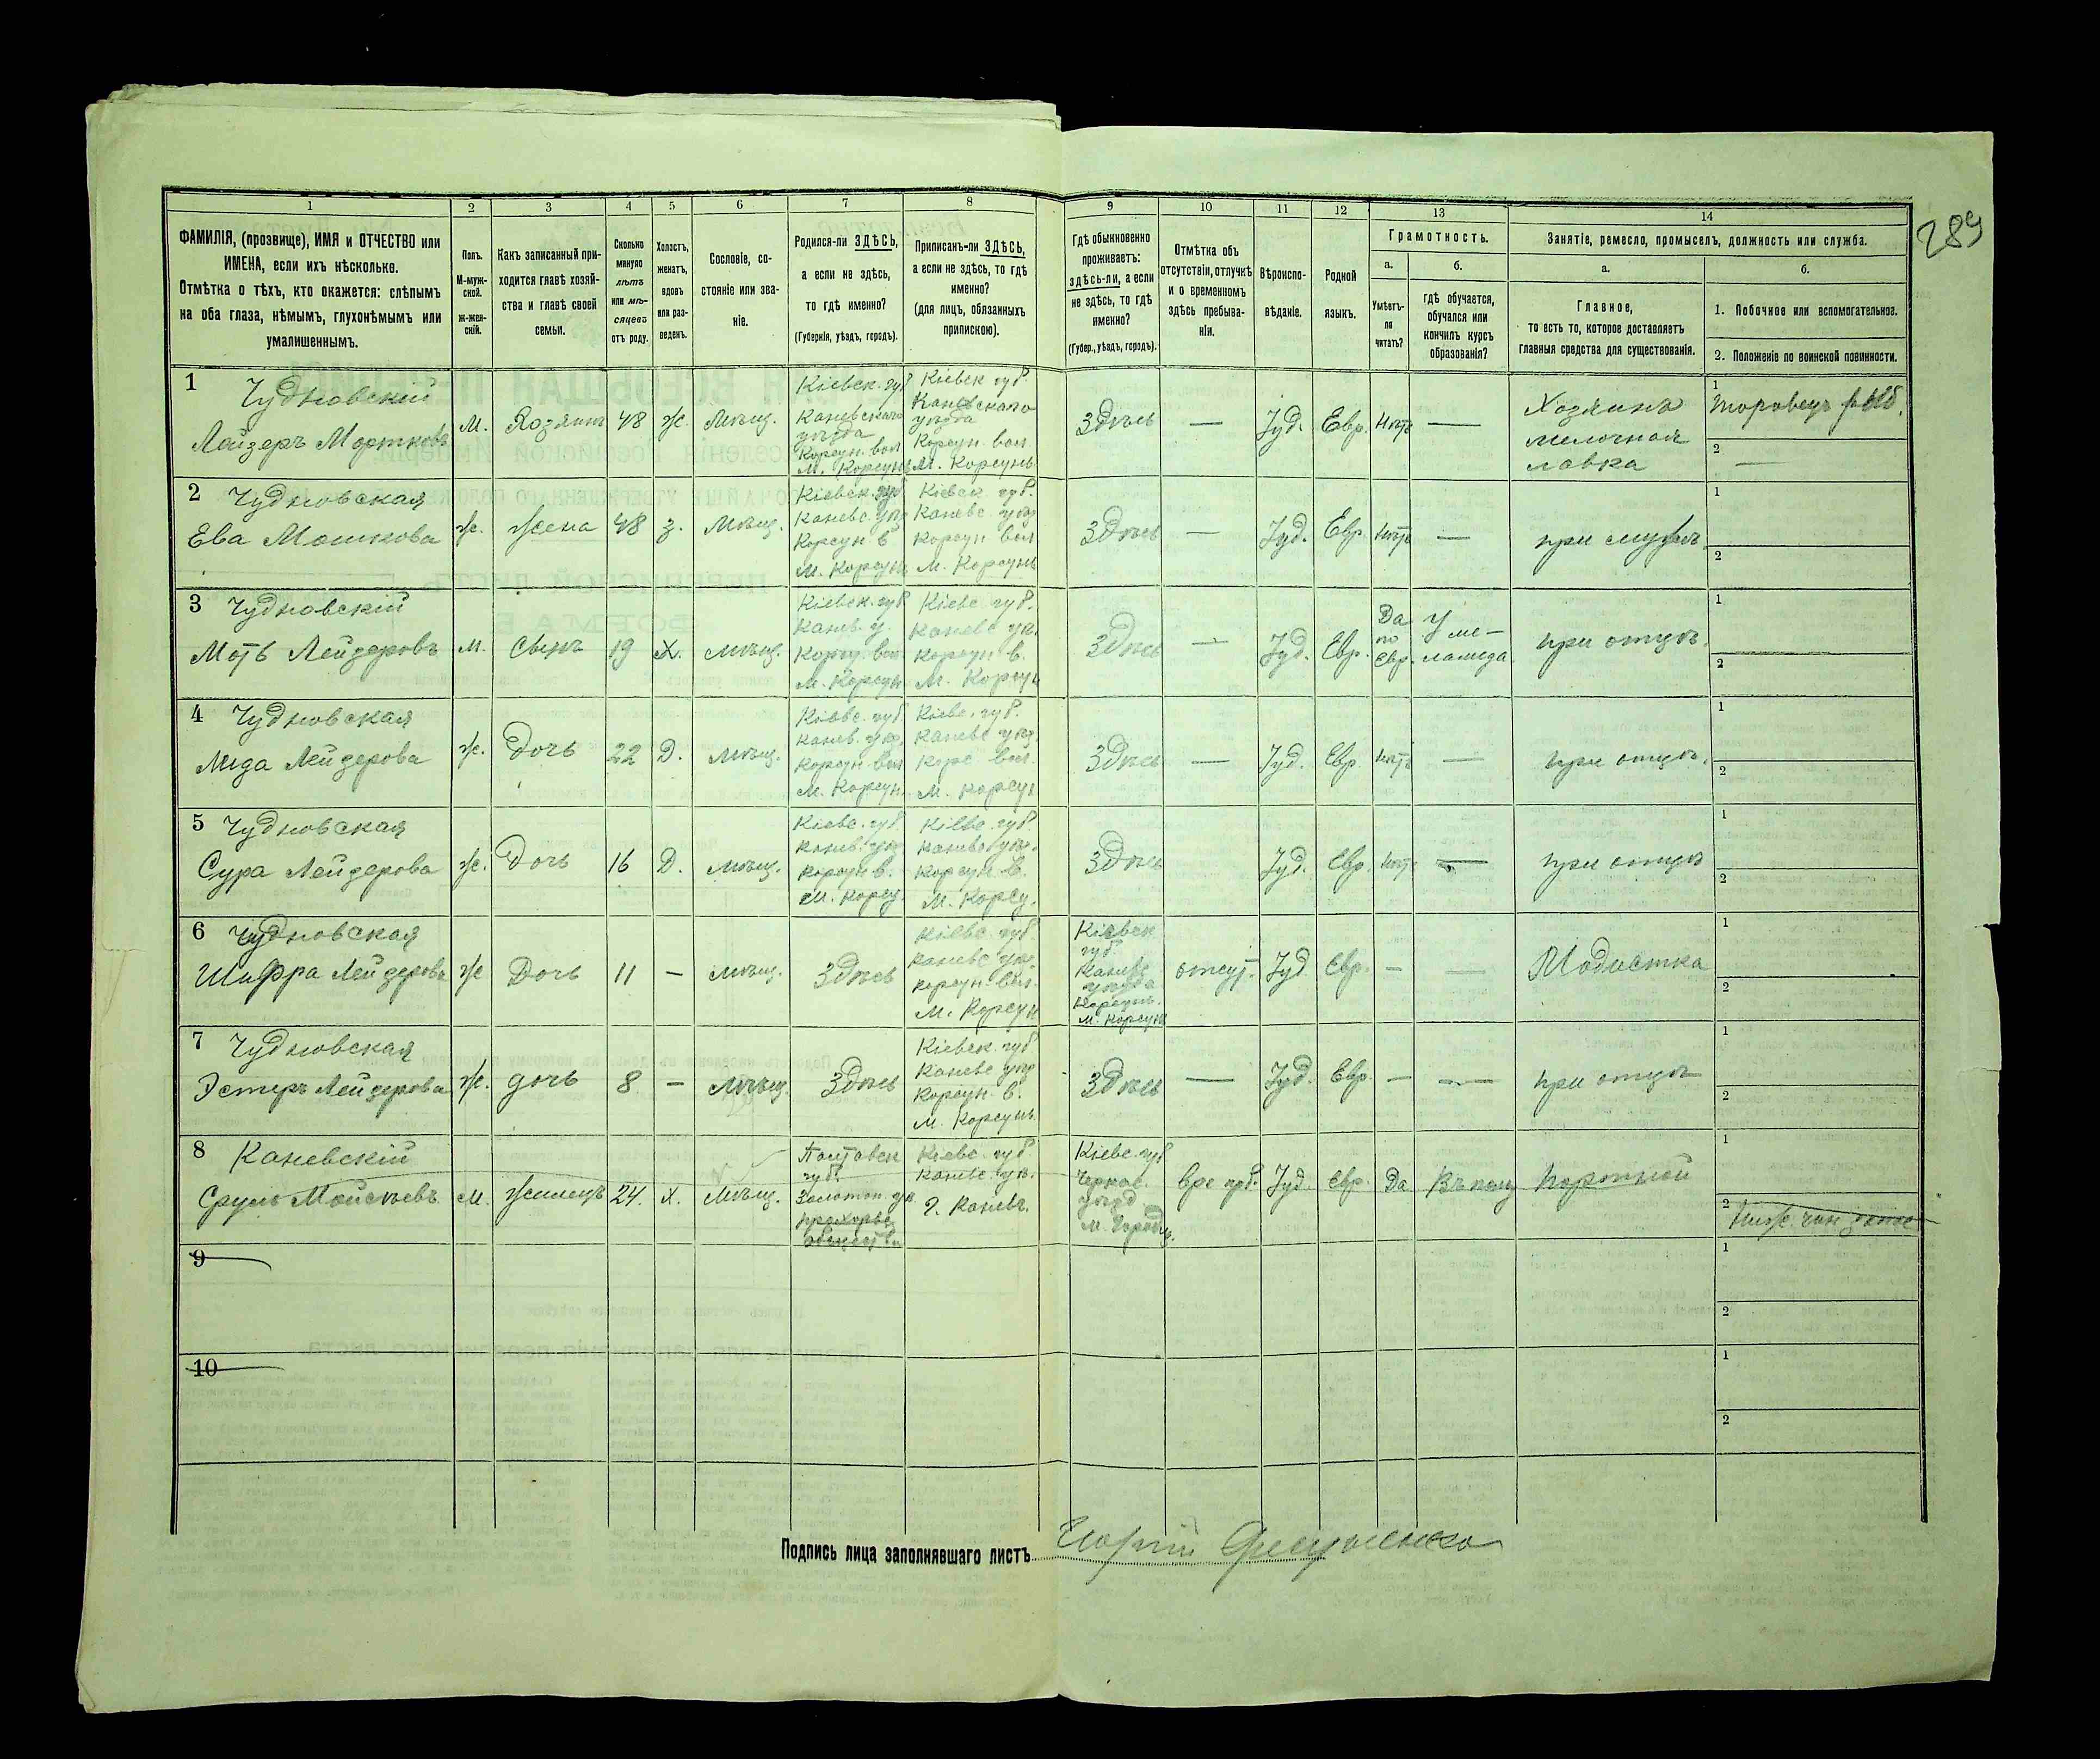 289
1 2 3 4 5 6 7 8 9 10 11 12 13 14
ФАМИЛІЯ, (прозвище), ИМЯ и ОТЧЕСТВО или
ИМЕНА, если ихъ нѣсколько.
Отмѣтка о тѣхъ, кто окажется: слѣпымъ
на оба глаза, нѣмымъ, глухонѣмымъ или
умалишеннымъ.
Полъ.
М-муж-
ской.
ж-жен-
скій.
Какъ записанный при-
ходится главѣ хозяй-
ства и главѣ своей
семьи.
Сколько
минуло
лѣтъ
или мѣ-
сяцевъ
отъ роду.
Холостъ,
женатъ,
вдовъ
или раз-
веденъ.
Сословіе, со-
стояніе или зва-
ніе.
Родился-ли ЗДѢСЬ,
а если не здѣсь,
то гдѣ именно?
(Губернія, уѣздъ, городъ).
Приписанъ-ли ЗДѢСЬ,
а если не здѣсь, то гдѣ
именно?
(для лицъ, обязанныхъ
припискою).
Гдѣ обыкновенно
проживаетъ:
здѣсь-ли, а если
не здѣсь, то гдѣ
именно?
(Губер., уѣздъ, городъ).
Отмѣтка объ
отсутствіи, отлучкѣ
и о временномъ
здѣсь пребыва-
ніи.
Вѣроиспо-
вѣданіе.
Родной
языкъ.
Грамотность.
а.
Умѣетъ-
ли
читать?
б.
Гдѣ обучается,
обучался или
кончилъ курсъ
образованія?
Занятіе, ремесло, промыселъ, должность или служба.
а.
Главное,
то есть то, которое доставляетъ
главныя средства для существованія.
б.
1. Побочное или вспомогательное.
2. Положеніе по воинской повинности.
1 Чудновскій
Лейзеръ Мортковъ
М.
Хозяинъ
48
Ж.
Мѣщ.
Кіевск. губ
Каневскаго
уѣзда
Корсун. вол
М. Корсунь
Кіевск губ.
Каневскаго
уѣзда
Корсун. вол
М. Корсунь
Здѣсь
—
Іуд.
Евр.
Нѣтъ
—
Хозяинъ
мелочная
лавка
1
Торговецъ рыб.
2
—
2 Чудновская
Ева Мошкова
Ж.
Жена
48
З.
Мѣщ.
Кіевск. губ
Каневс. уѣз
Корсун. в
М. Корсунь
Кіевск губ.
Каневс. уѣз
Корсун вол
М. Корсунь
Здѣсь
—
Іуд.
Евр.
Нѣтъ
—
при мужѣ
1
2
3 Чудновскій
Моть Лейзеровъ
М.
Сынъ
19
Х.
Мѣщ.
Кіевск. губ
Канев. у.
Корсу. вол
М. Корсун
Кіевс губ.
Каневс уѣ.
Корсун в.
М. Корсун
Здѣсь
—
Іуд.
Евр.
Да
по
Евр.
У ме-
ламеда
при отцѣ.
1
2
4 Чудновская
Лида Лейзерова
Ж.
Дочь
22
Д.
Мѣщ.
Кіевс. губ.
Канев. уѣз.
Корсун вол
М. Корсун.
Кіевс. губ.
Каневс уѣз.
Корс. вол.
М. Корсун
Здѣсь
—
Іуд.
Евр.
Нѣтъ
—
при отцѣ.
1
2
5 Чудновская
Сура Лейзерова
Ж.
Дочь
16
Д.
Мѣщ.
Кіевс. губ.
Канев. уѣз
Корсун в.
М. Корсу.
Кіевс. губ.
Каневс уѣз.
Корсун. в.
М. Корсу.
Здѣсь
Іуд.
Евр.
Нѣтъ
—
при отцѣ
1
2
6 Чудновская
Шифра Лейзерова
Ж
Дочь
11
—
Мѣщ.
Здѣсь
Кіевс. губ.
Каневс уѣз.
Корсун. вол.
М. Корсун
Кіевск
губ.
Каневс
уѣзда
Корсун.
М. Корсун
отсут.
Іуд.
Евр.
—
—
Модистка
1
2
7 Чудновская
Эстеръ Лейзерова
Ж.
дочь
8
—
Мѣщ.
Здѣсь
Кіевск. губ
Каневс уѣз
Корсун. в.
М. Корсунь
Здѣсь
—
Іуд.
Евр.
—
—
при отцѣ
1
2
8 Каневскій
Сруль Мойсеевъ
М.
Жилецъ
24.
Х.
Мѣщ.
Полтавск
губ.
Золотон. уѣ
Кіевс. губ.
Каневс. уѣз.
г. Каневъ.
Кіевс. губ
Черкас.
уѣзд
вре преб.
Іуд.
Евр.
Да
Портной
1
2
Ниж. чин запас
1
9
2
1
10
2
Подпись лица заполнявшаго листъ